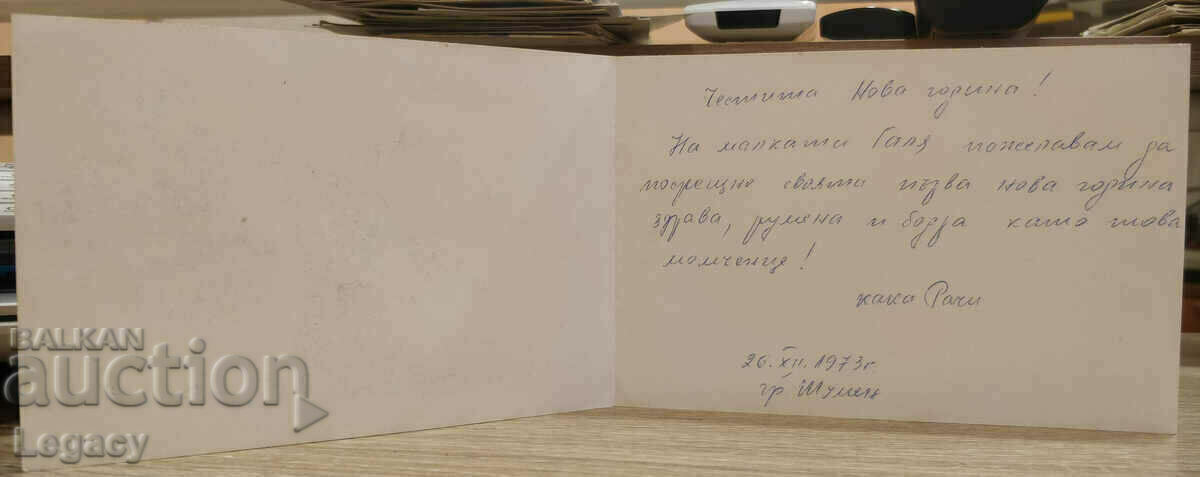 Честита Нова година!
На малката Галя пожелавам да
посрещне своята първа нова година
здрава, румена и бодра като това
момченце!
кака Рачи
26. XII. 1973 г.
гр Шумен
BALKAN
auction
Legacy